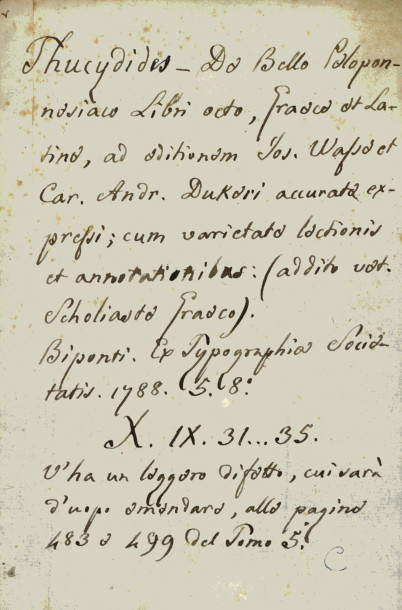 Thucydides – De Bello Pelopon-
nesiaco Libri octo, Graece et La-
tine, ad editionem Jos. Wasse et
Car. Andr. Dukeri accurate ex-
pressi; cum varietate lectionis
et annotationibus: (addito vet.
Scholiaste Graeco).
Biponti. Ex Typographia Socie-
tatis. 1788. 5. 8.°
X. IX. 31...35.
V'ha un leggero difetto, cui sarà
d'uopo emendare, alle pagine
483 e 499 del Tomo 5.°
C